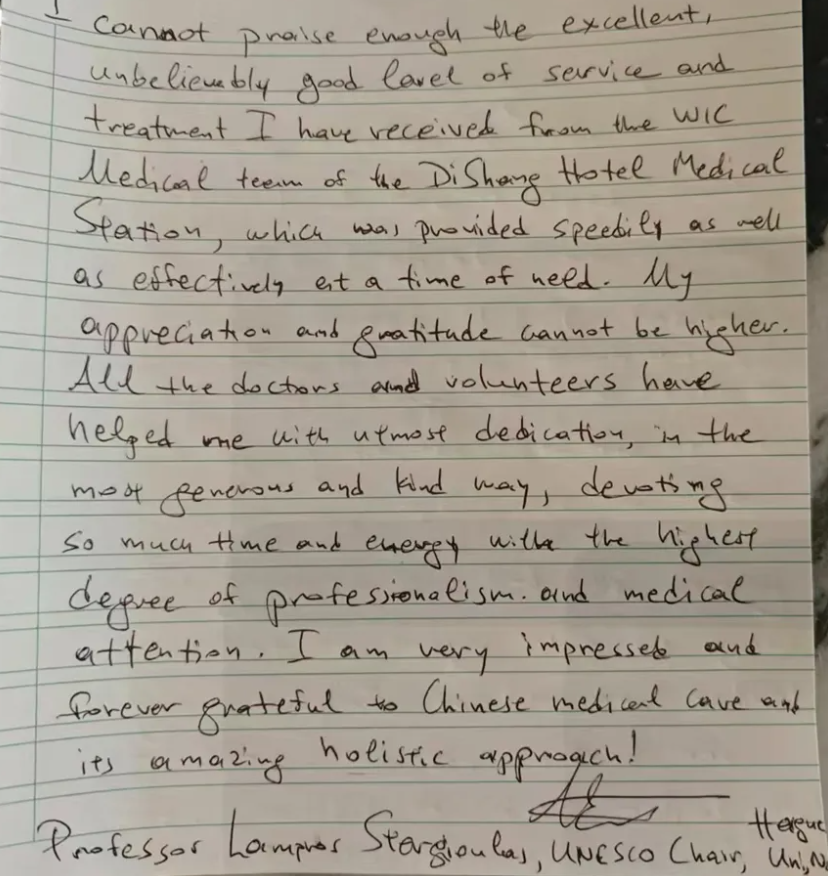 I cannot praise enough the excellent,
unbelievably good level of service and
treatment I have received from the WIC
Medical team of the DiShang Hotel Medical
Station, which was provided speedily as well
as effectively at a time of need. My
appreciation and gratitude cannot be higher.
All the doctors and volunteers have
helped me with utmost dedication, in the
most generous and kind way, devoting
so much time and energy with the highest
degree of professionalism. and medical
attention. I am very impressed and
forever grateful to Chinese medical care and
its amazing holistic approach!
Professor Lampros Stergioulas, UNESCO Chair, Hague
Uni, N